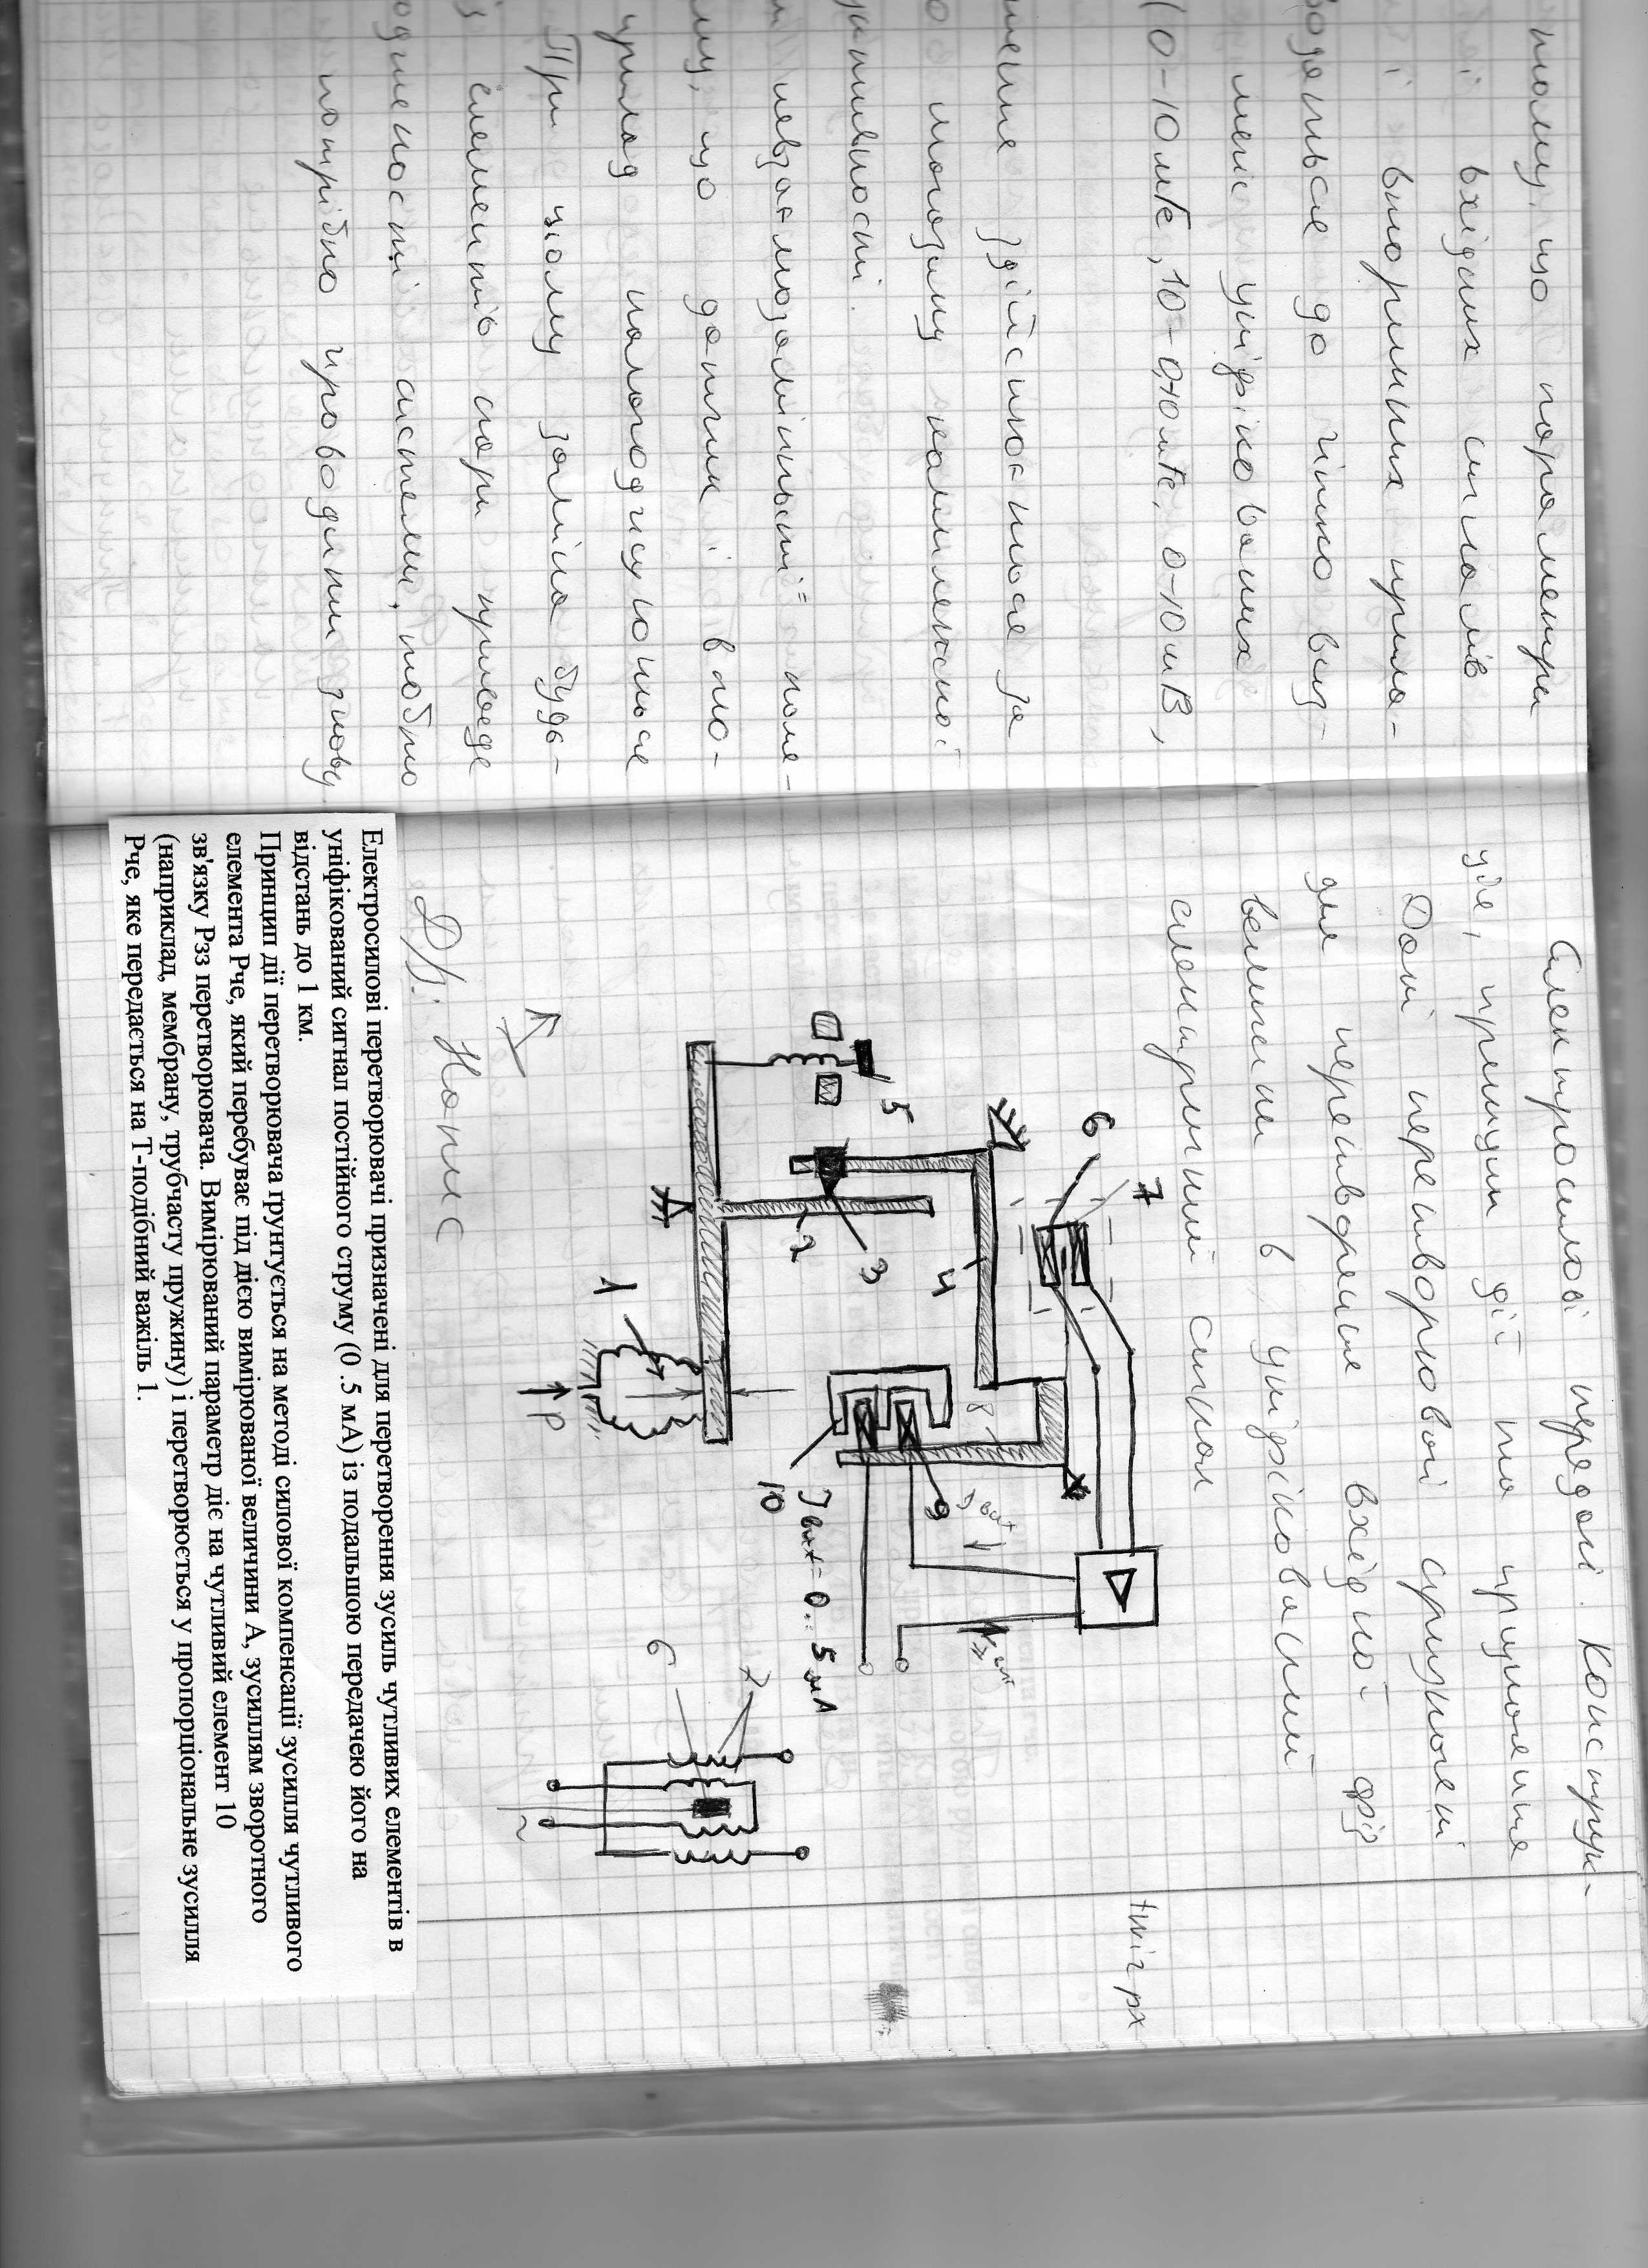 тому, що параметри
вхідних сигналів
і вторинних прила-
водяться до чітко виз-
уніфікованих
(0-10мГн, 10-0-10мГн, 0-10мВ,
здійснюється за
можливої
.
невзаємозамінності
що датчик і вто-
прилад налагоджуються
При цьому заміна будь-
елементів пари приведе
системи, тобто
потрібно проводити знову
Електросилові передачі. Конструк-
ція, принцип дії та призначення
Дані перетворювачі призначені
для перетворення вхідної фіз
величини в уніфікований
електричний сигнал
6
7
5
4
3
2
1
P
8
9
10
I вих
I вих = 0..5 мА
6
7
~
Д/З: Напис
Електросилові перетворювачі призначені для перетворення зусиль чутливих елементів в
уніфікований сигнал постійного струму (0 .5 мА) із подальшою передачею його на
відстань до 1 км.
Принцип дії перетворювача ґрунтується на методі силової компенсації зусилля чутливого
елемента Рче, який перебуває під дією вимірюваної величини А, зусиллям зворотного
зв'язку Рзз перетворювача. Вимірюваний параметр діє на чутливий елемент 10
(наприклад, мембрану, трубчасту пружину) і перетворюється у пропорціональне зусилля
Рче, яке передається на Т-подібний важіль 1.